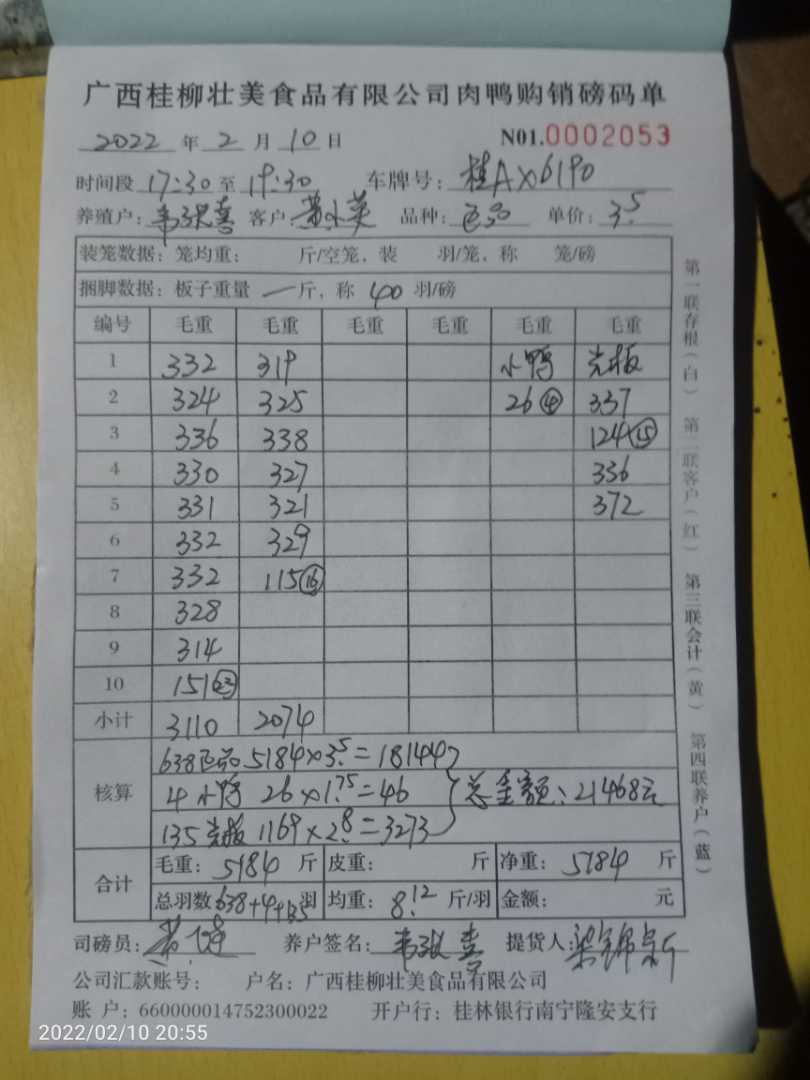 广西桂柳壮美食品有限公司肉鸭购销磅码单
2022 年 2 月 10 日 N01.0002053
时间段 17:30 至 19:30 车牌号: 桂AX6190
养殖户: 韦 喜 客户: 黄小英 品种: 正品 单价: 3.5
装笼数据: 笼均重: 斤/空笼, 装 羽/笼, 称 笼/磅
捆脚数据: 板子重量 一 斤, 称 40 羽/磅
编号 毛重 毛重 毛重 毛重 毛重 毛重
1 332 319 小鸭 光板
2 324 325 26④ 337
3 336 338 124⑮
4 330 327 336
5 331 321 372
6 332 329
7 332 115⑯
8 328
9 314
10 151㉓
小计 3110 2074
638正品 5184×3.5=18144
核算 4小鸭 26×1.75=46 总金额: 21468元
135光板 1169×2.8=3273
合计 毛重: 5184 斤 皮重: 斤 净重: 5184 斤
总羽数 638+4+135 羽 均重: 8.12 斤/羽 金额: 元
司磅员: 黄 养户签名: 韦 喜 提货人: 梁锦
公司汇款账号: 户名: 广西桂柳壮美食品有限公司
账 户: 660000014752300022 开户行: 桂林银行南宁隆安支行
第一联存根(白) 第二联客户(红) 第三联会计(黄) 第四联养户(蓝)
2022/02/10 20:55